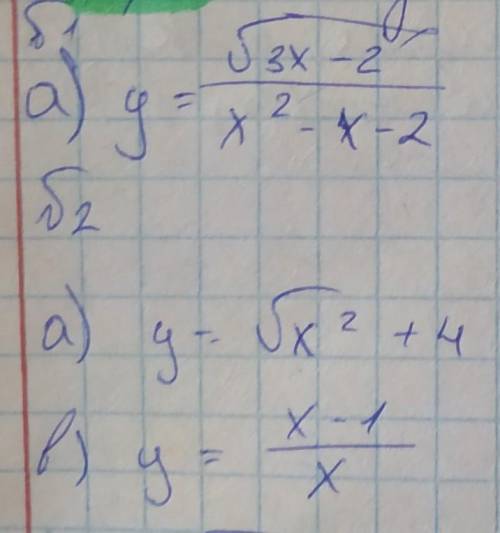 √1
а) y = √(3x - 2) / (x² - x - 2)
√2
а) y = √x² + 4
в) y = (x - 1) / x